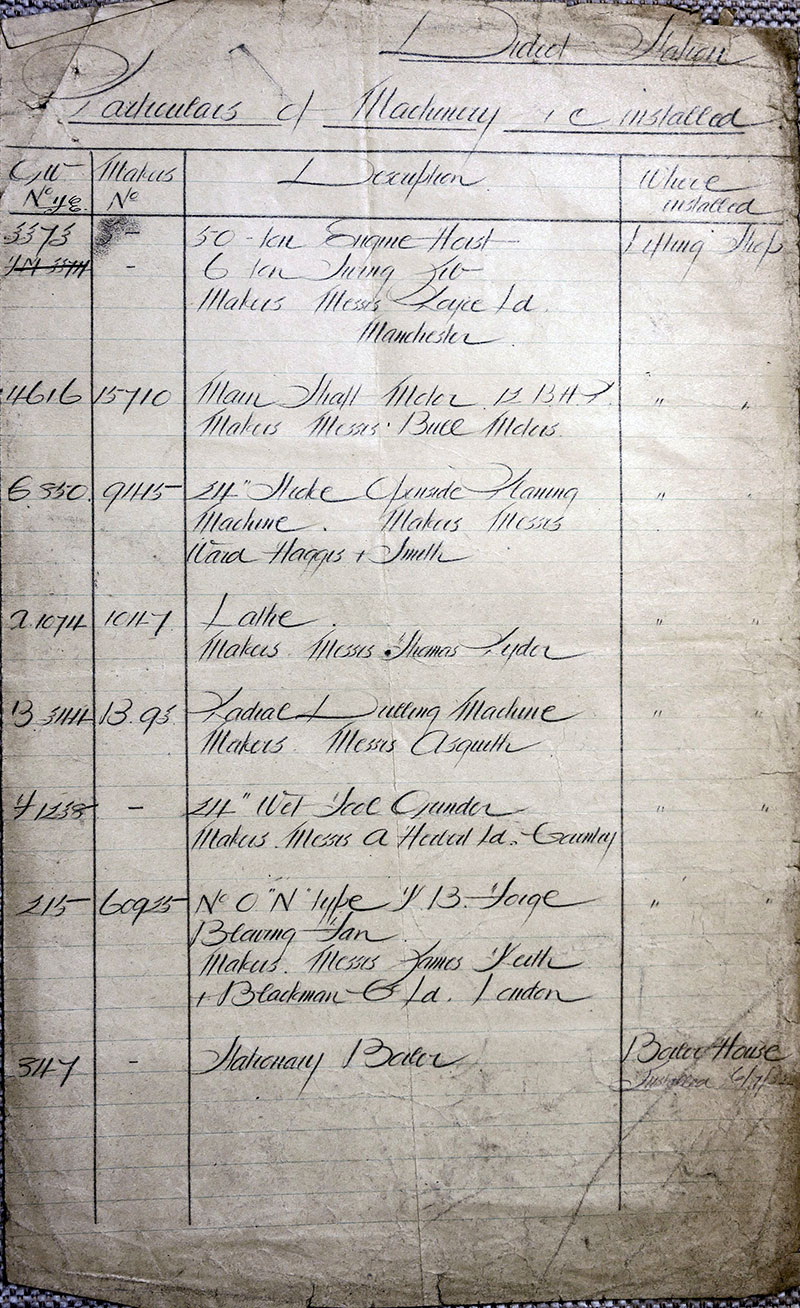 Didcot Station
Particulars of Machinery &c installed
GW Makers Description Where
No No installed
3373 - 50-ton Engine Hoist Lifting Shop
- 6 ton Swing Jib
Makers Messrs Royce Ld.
Manchester
4616 15710 Main Shaft Motor B.H.P. " "
Makers Messrs Bull Motors.
6.350. 9145 24" Stroke Openside Planing " "
Machine. Makers Messrs
Ward Haggis + Smith
1074 1047 Lathe. " "
Makers Messrs Thomas Ryder
B 344 B.93 Radial Drilling Machine " "
Makers. Messrs Asquith
1238 - 24" Wet Tool Grinder " "
Makers. Messrs A Herbert Ld.
215 60925 No 0 "N" Type Y B. Forge " "
Blowing Fan.
Makers. Messrs James Keith
+ Blackman Co Ld. London
347 - Stationary Boiler Boiler House
Installed